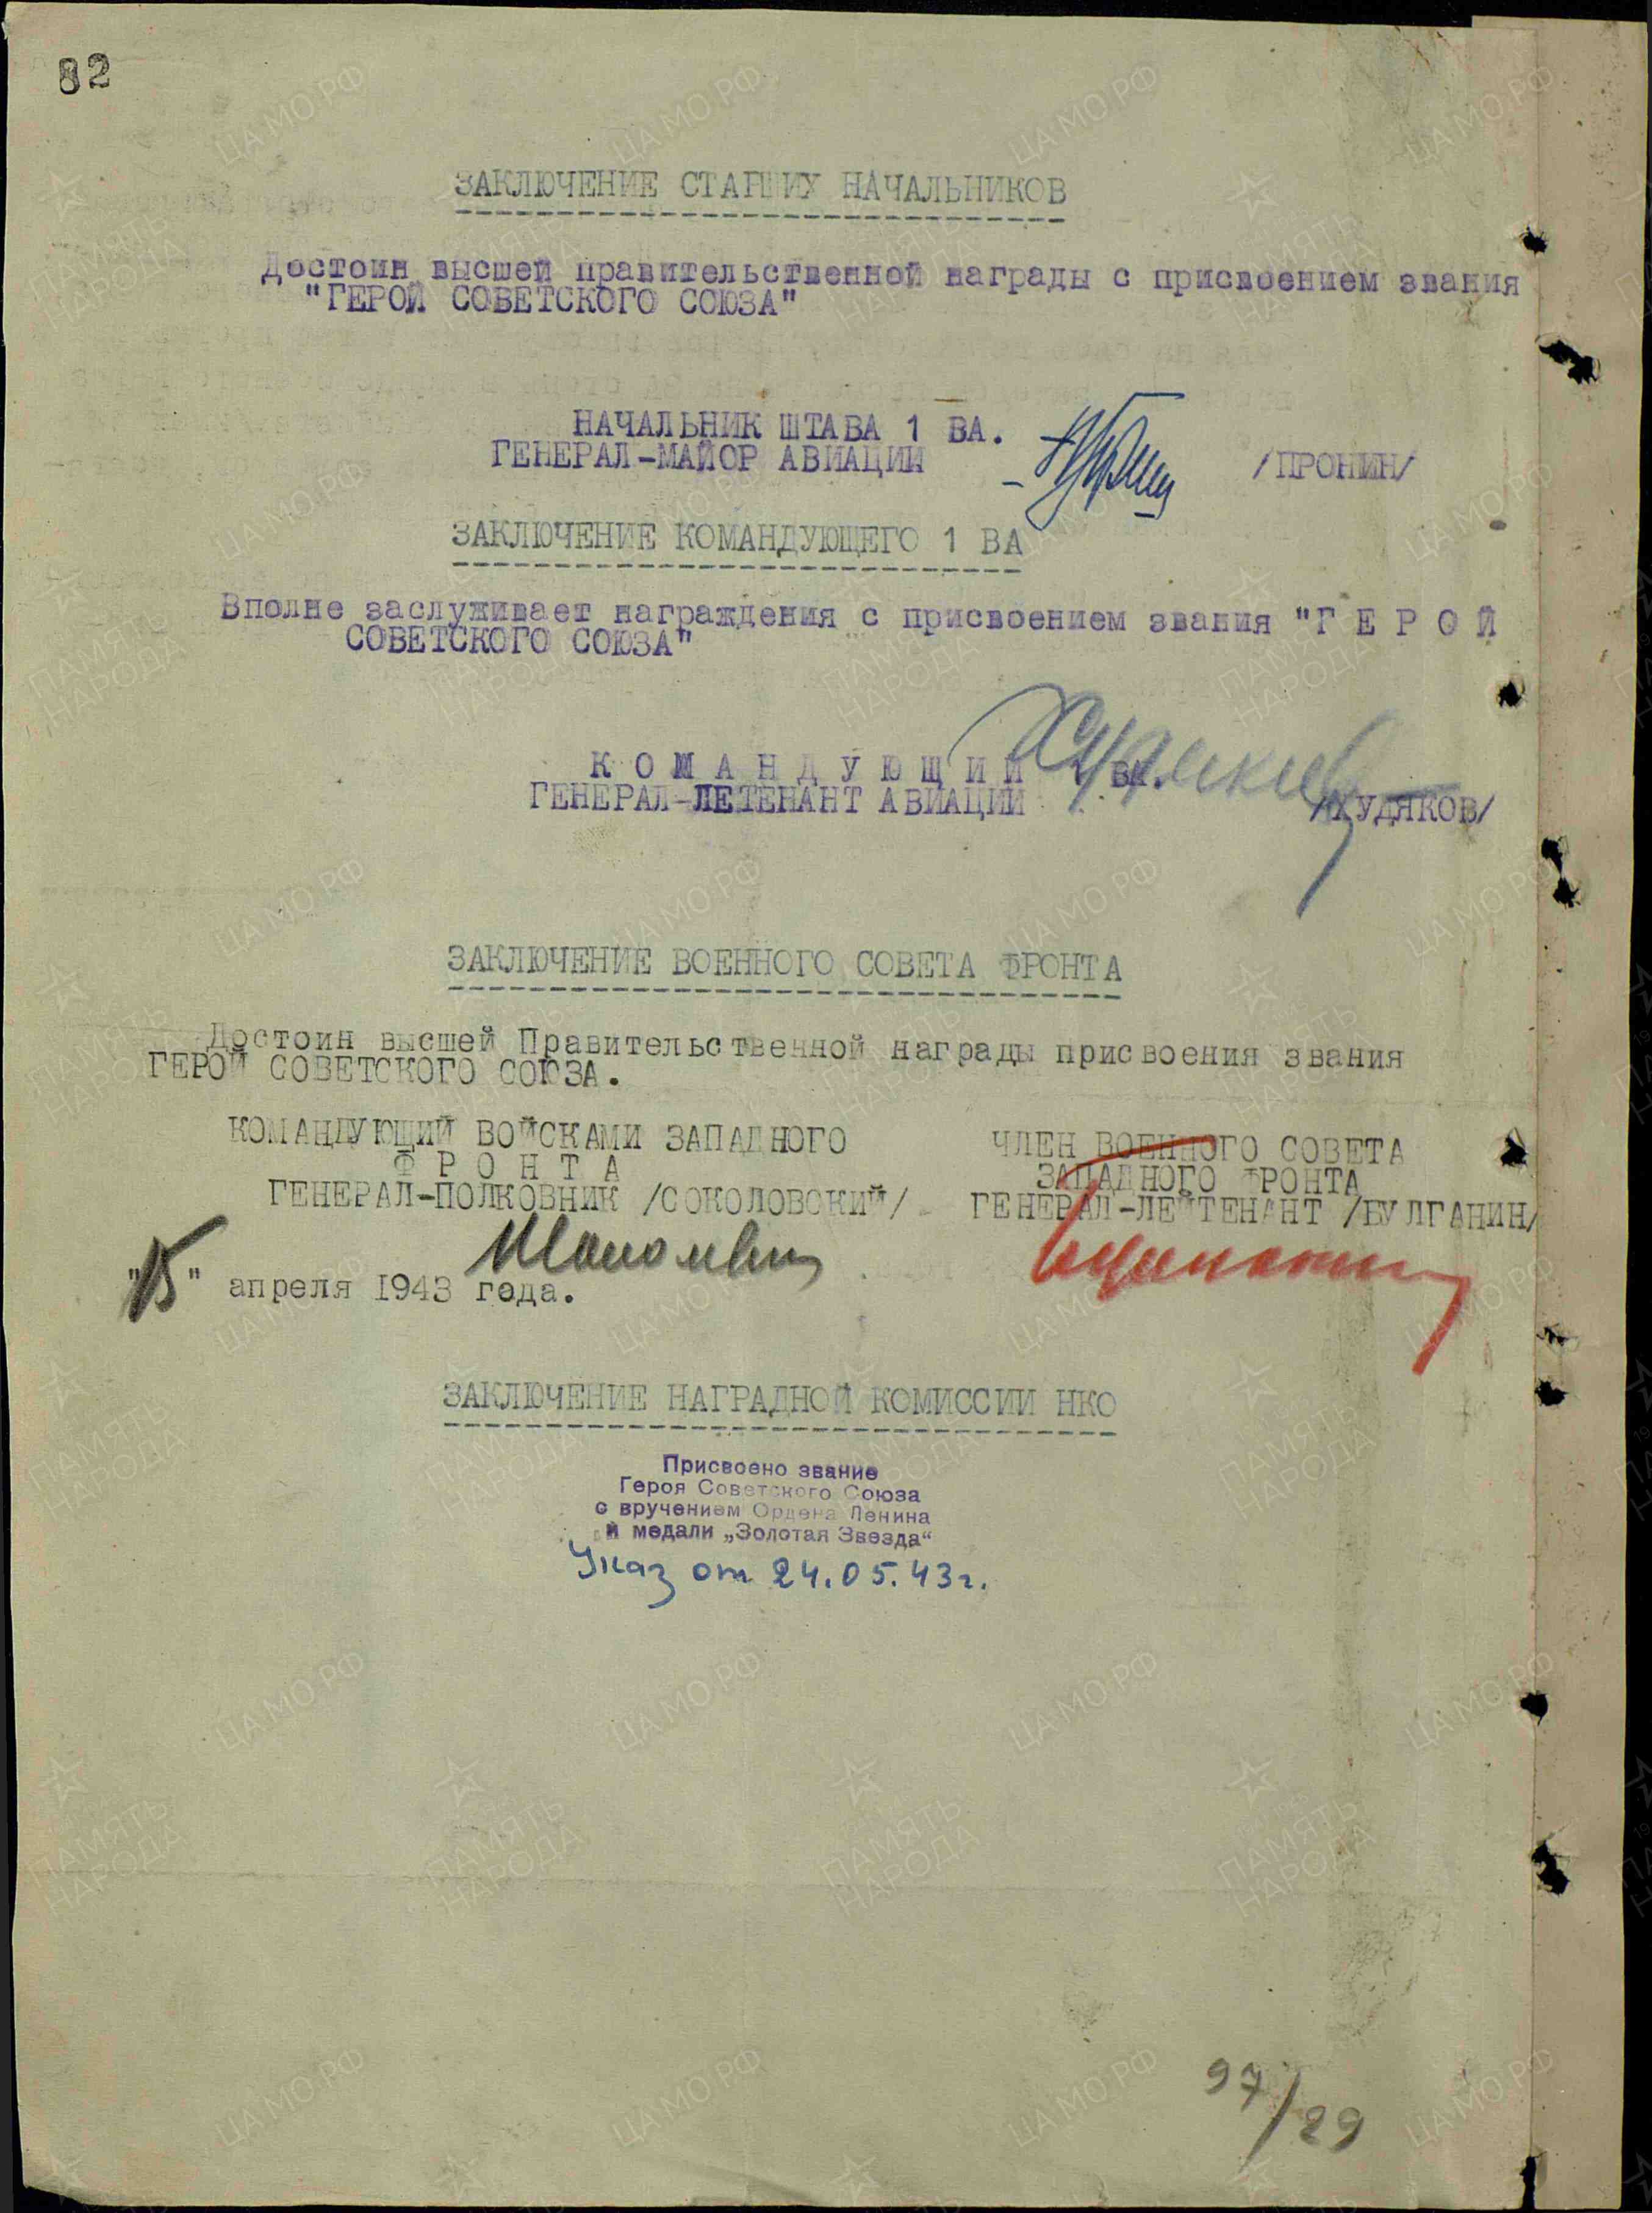 82
ЗАКЛЮЧЕНИЕ СТАРШИХ НАЧАЛЬНИКОВ
Достоин высшей правительственной награды с присвоением звания
"ГЕРОЙ СОВЕТСКОГО СОЮЗА"
НАЧАЛЬНИК ШТАБА 1 ВА.
ГЕНЕРАЛ-МАЙОР АВИАЦИИ /ПРОНИН/
ЗАКЛЮЧЕНИЕ КОМАНДУЮЩЕГО 1 ВА
Вполне заслуживает награждения с присвоением звания "Г Е Р О Й
СОВЕТСКОГО СОЮЗА"
К О М А Н Д У Ю Щ И Й ВА.
ГЕНЕРАЛ-ЛЕТЕНАНТ АВИАЦИИ /ХУДЯКОВ/
ЗАКЛЮЧЕНИЕ ВОЕННОГО СОВЕТА ФРОНТА
Достоин высшей Правительственной награды присвоения звания
ГЕРОЙ СОВЕТСКОГО СОЮЗА.
КОМАНДУЮЩИЙ ВОЙСКАМИ ЗАПАДНОГО
Ф Р О Н Т А
ГЕНЕРАЛ-ПОЛКОВНИК /СОКОЛОВСКИЙ/
ЧЛЕН ВОЕННОГО СОВЕТА
ЗАПАДНОГО ФРОНТА
ГЕНЕРАЛ-ЛЕЙТЕНАНТ /БУЛГАНИН/
"15" апреля 1943 года.
ЗАКЛЮЧЕНИЕ НАГРАДНОЙ КОМИССИИ НКО
Присвоено звание
Героя Советского Союза
с вручением Ордена Ленина
и медали „Золотая Звезда“
Указ от 24.05.43г.
97/29
ЦА МО РФ
ПАМЯТЬ
НАРОДА